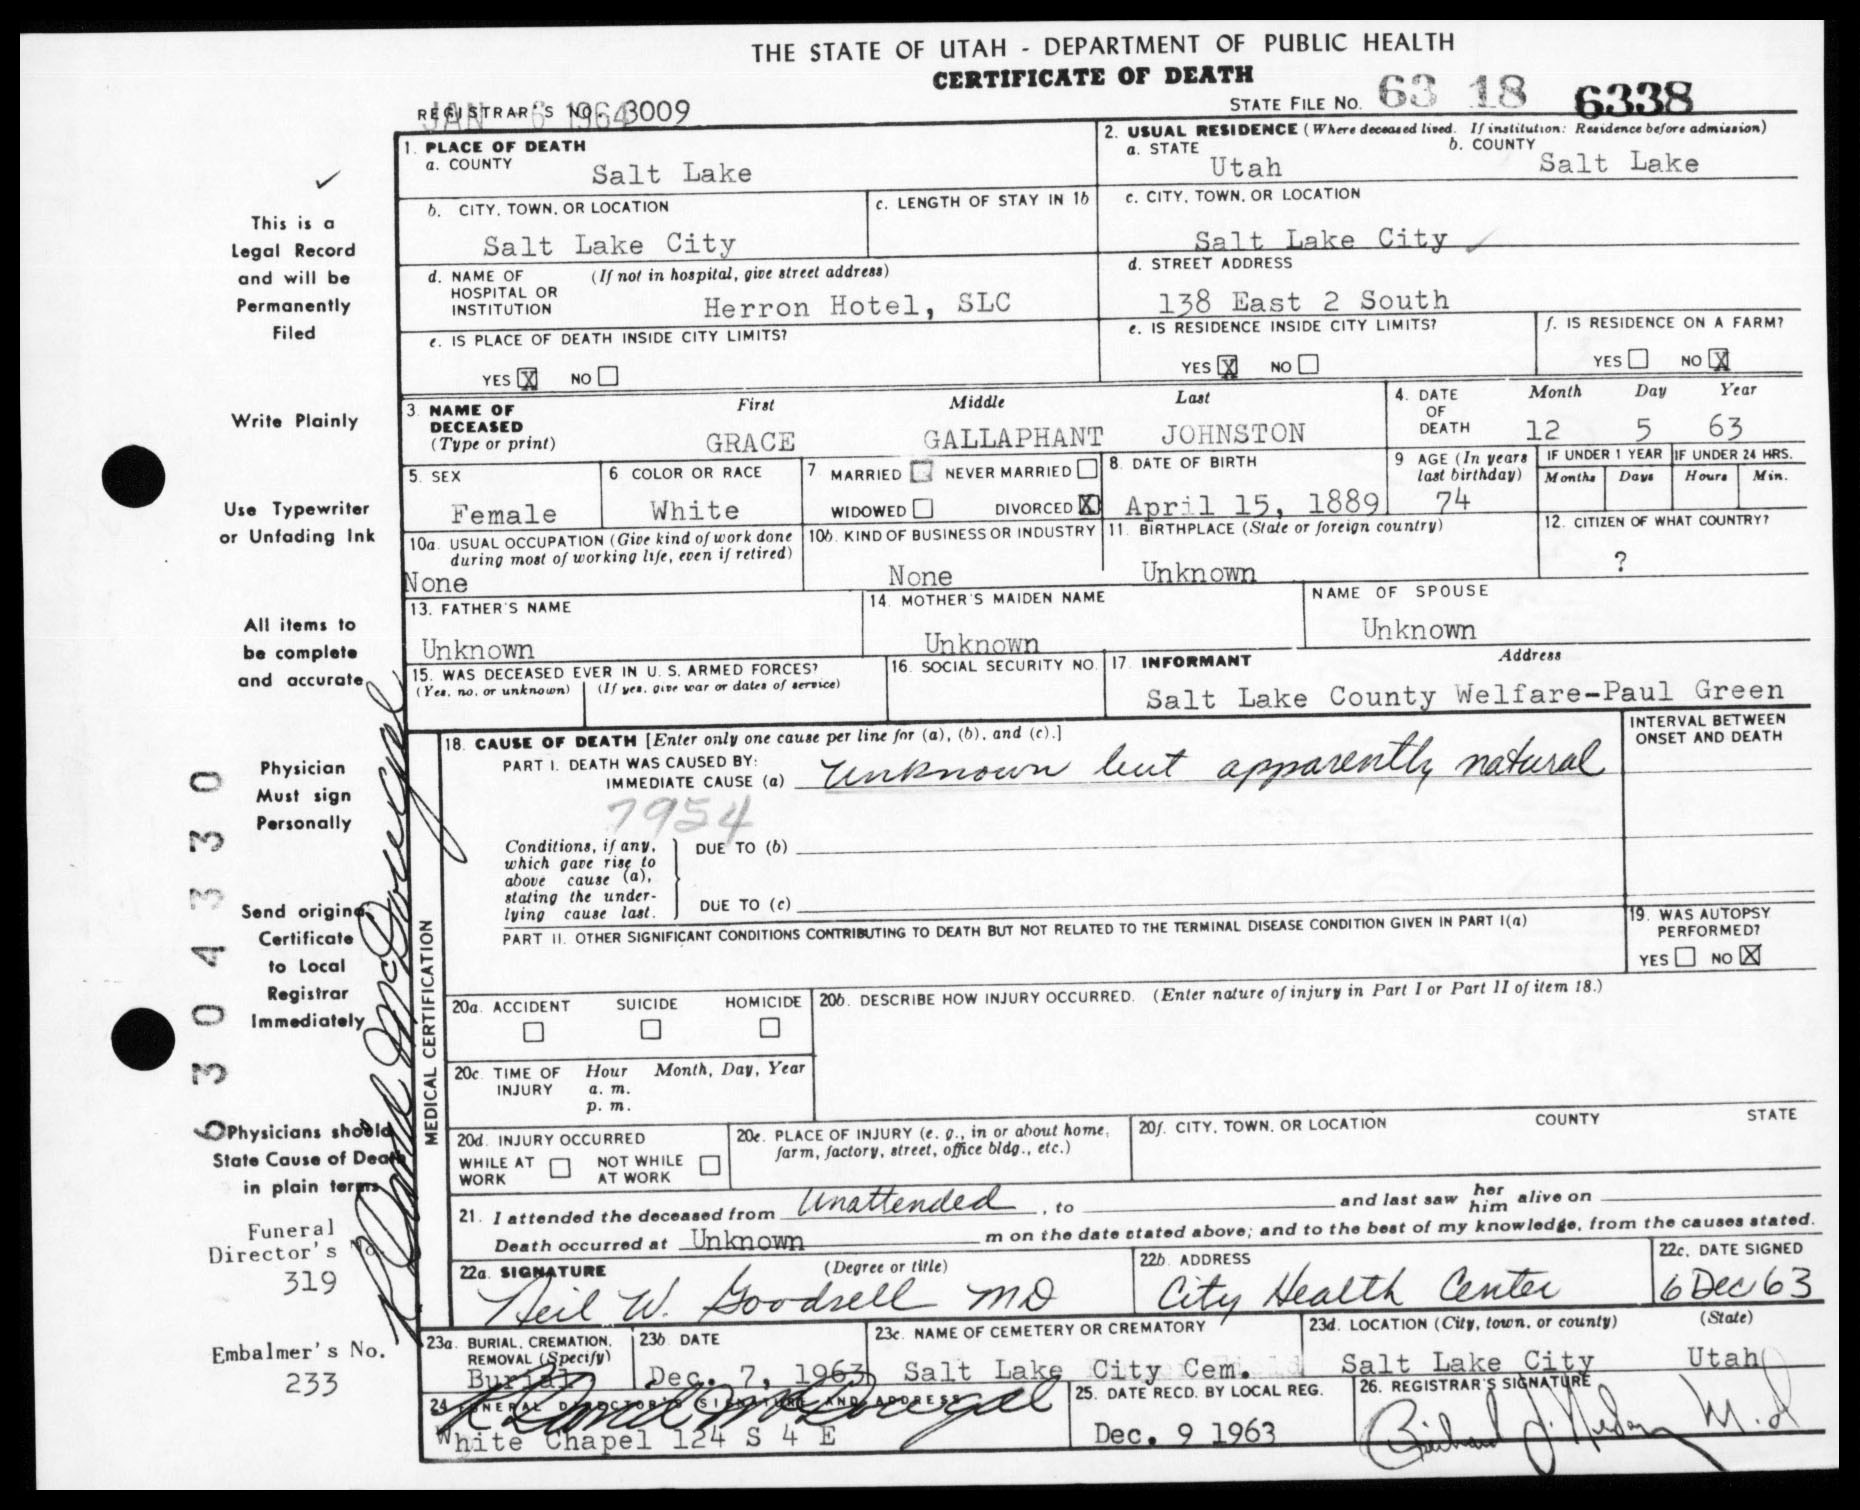 THE STATE OF UTAH - DEPARTMENT OF PUBLIC HEALTH
CERTIFICATE OF DEATH
REGISTRAR'S NO. 3009
JAN 6 1964
STATE FILE NO. 63 18 6338
This is a
Legal Record
and will be
Permanently
Filed
Write Plainly
Use Typewriter
or Unfading Ink
All items to
be complete
and accurate
Physician
Must sign
Personally
Send original
Certificate
to Local
Registrar
Immediately
Physicians should
State Cause of Death
in plain terms
Funeral
Director's No.
319
Embalmer's No.
233
6304330
1. PLACE OF DEATH
a. COUNTY
Salt Lake
2. USUAL RESIDENCE (Where deceased lived. If institution: Residence before admission)
a. STATE Utah b. COUNTY Salt Lake
b. CITY, TOWN, OR LOCATION
Salt Lake City
c. LENGTH OF STAY IN 1b
c. CITY, TOWN, OR LOCATION
Salt Lake City
d. NAME OF HOSPITAL OR INSTITUTION (If not in hospital, give street address)
Herron Hotel, SLC
d. STREET ADDRESS
138 East 2 South
e. IS PLACE OF DEATH INSIDE CITY LIMITS?
YES X NO
e. IS RESIDENCE INSIDE CITY LIMITS?
YES X NO
f. IS RESIDENCE ON A FARM?
YES NO X
3. NAME OF DECEASED (Type or print)
First Middle Last
GRACE GALLAPHANT JOHNSTON
4. DATE OF DEATH Month Day Year
12 5 63
5. SEX
Female
6 COLOR OR RACE
White
7 MARRIED NEVER MARRIED
WIDOWED DIVORCED X
8. DATE OF BIRTH
April 15, 1889
9 AGE (In years last birthday)
74
IF UNDER 1 YEAR
Months Days
IF UNDER 24 HRS.
Hours Min.
10a. USUAL OCCUPATION (Give kind of work done during most of working life, even if retired)
None
10b. KIND OF BUSINESS OR INDUSTRY
None
11. BIRTHPLACE (State or foreign country)
Unknown
12. CITIZEN OF WHAT COUNTRY?
?
13. FATHER'S NAME
Unknown
14. MOTHER'S MAIDEN NAME
Unknown
NAME OF SPOUSE
Unknown
15. WAS DECEASED EVER IN U. S. ARMED FORCES?
(Yes, no, or unknown) (If yes, give war or dates of service)
16. SOCIAL SECURITY NO.
17. INFORMANT Address
Salt Lake County Welfare-Paul Green
MEDICAL CERTIFICATION
18. CAUSE OF DEATH [Enter only one cause per line for (a), (b), and (c).]
INTERVAL BETWEEN ONSET AND DEATH
PART I. DEATH WAS CAUSED BY:
IMMEDIATE CAUSE (a) Unknown but apparently natural
7954
Conditions, if any, which gave rise to above cause (a), stating the underlying cause last.
DUE TO (b)
DUE TO (c)
PART II. OTHER SIGNIFICANT CONDITIONS CONTRIBUTING TO DEATH BUT NOT RELATED TO THE TERMINAL DISEASE CONDITION GIVEN IN PART I(a)
19. WAS AUTOPSY PERFORMED?
YES NO X
20a. ACCIDENT SUICIDE HOMICIDE
20b. DESCRIBE HOW INJURY OCCURRED. (Enter nature of injury in Part I or Part II of item 18.)
20c. TIME OF INJURY Hour a. m. p. m. Month, Day, Year
20d. INJURY OCCURRED
WHILE AT WORK NOT WHILE AT WORK
20e. PLACE OF INJURY (e. g., in or about home, farm, factory, street, office bldg., etc.)
20f. CITY, TOWN, OR LOCATION COUNTY STATE
21. I attended the deceased from Unattended, to and last saw her him alive on
Death occurred at Unknown m on the date stated above; and to the best of my knowledge, from the causes stated.
22a. SIGNATURE (Degree or title)
Neil W. Goodsell MD
22b. ADDRESS
City Health Center
22c. DATE SIGNED
6 Dec 63
23a. BURIAL, CREMATION, REMOVAL (Specify)
Burial
23b. DATE
Dec. 7, 1963
23c. NAME OF CEMETERY OR CREMATORY
Salt Lake City Cem.
23d. LOCATION (City, town, or county) (State)
Salt Lake City Utah
24 FUNERAL DIRECTOR'S SIGNATURE AND ADDRESS
White Chapel 124 S 4 E
25. DATE RECD. BY LOCAL REG.
Dec. 9 1963
26. REGISTRAR'S SIGNATURE
Richard M.d